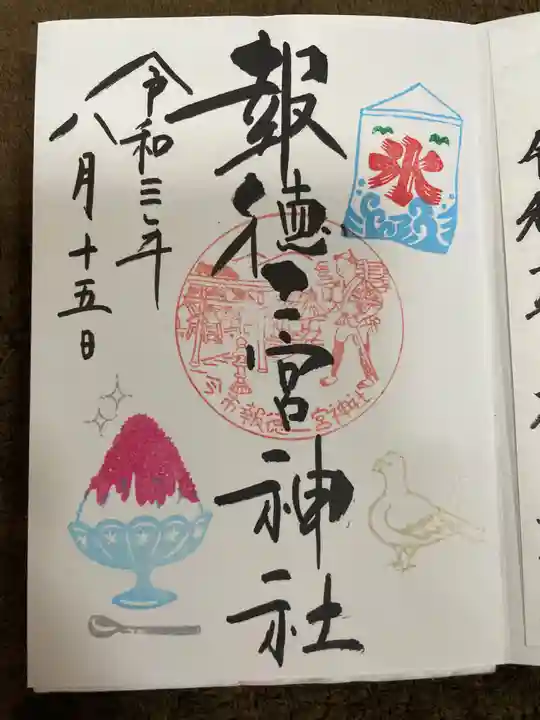 氷
報徳二宮神社
令和三年
八月十五日
報徳二宮神社